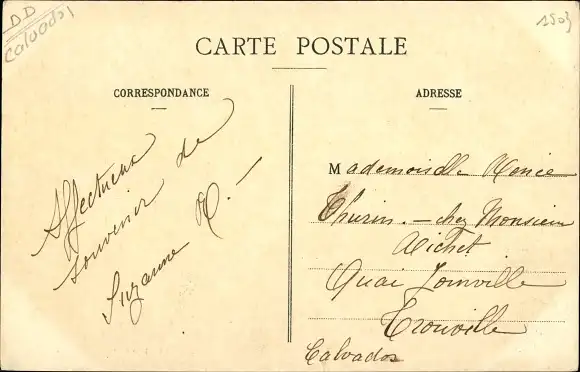 DD
Calvados
1503
CARTE POSTALE
CORRESPONDANCE
Affectueux
souvenir de
Suzanne R. —
ADRESSE
Mademoiselle Renée
Thurin. — chez Monsieur
Richet
Quai Joinville
Trouville
Calvados